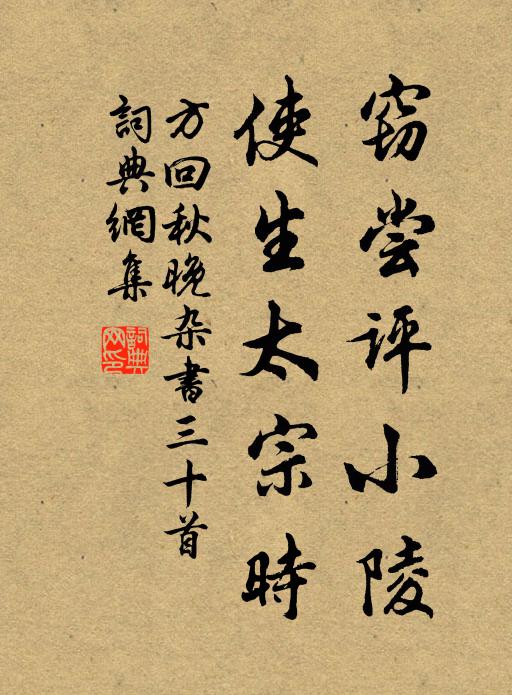 窃尝评小陵
使生太宗時
方回秋晚杂書三十首
詞典網集
詞典网印